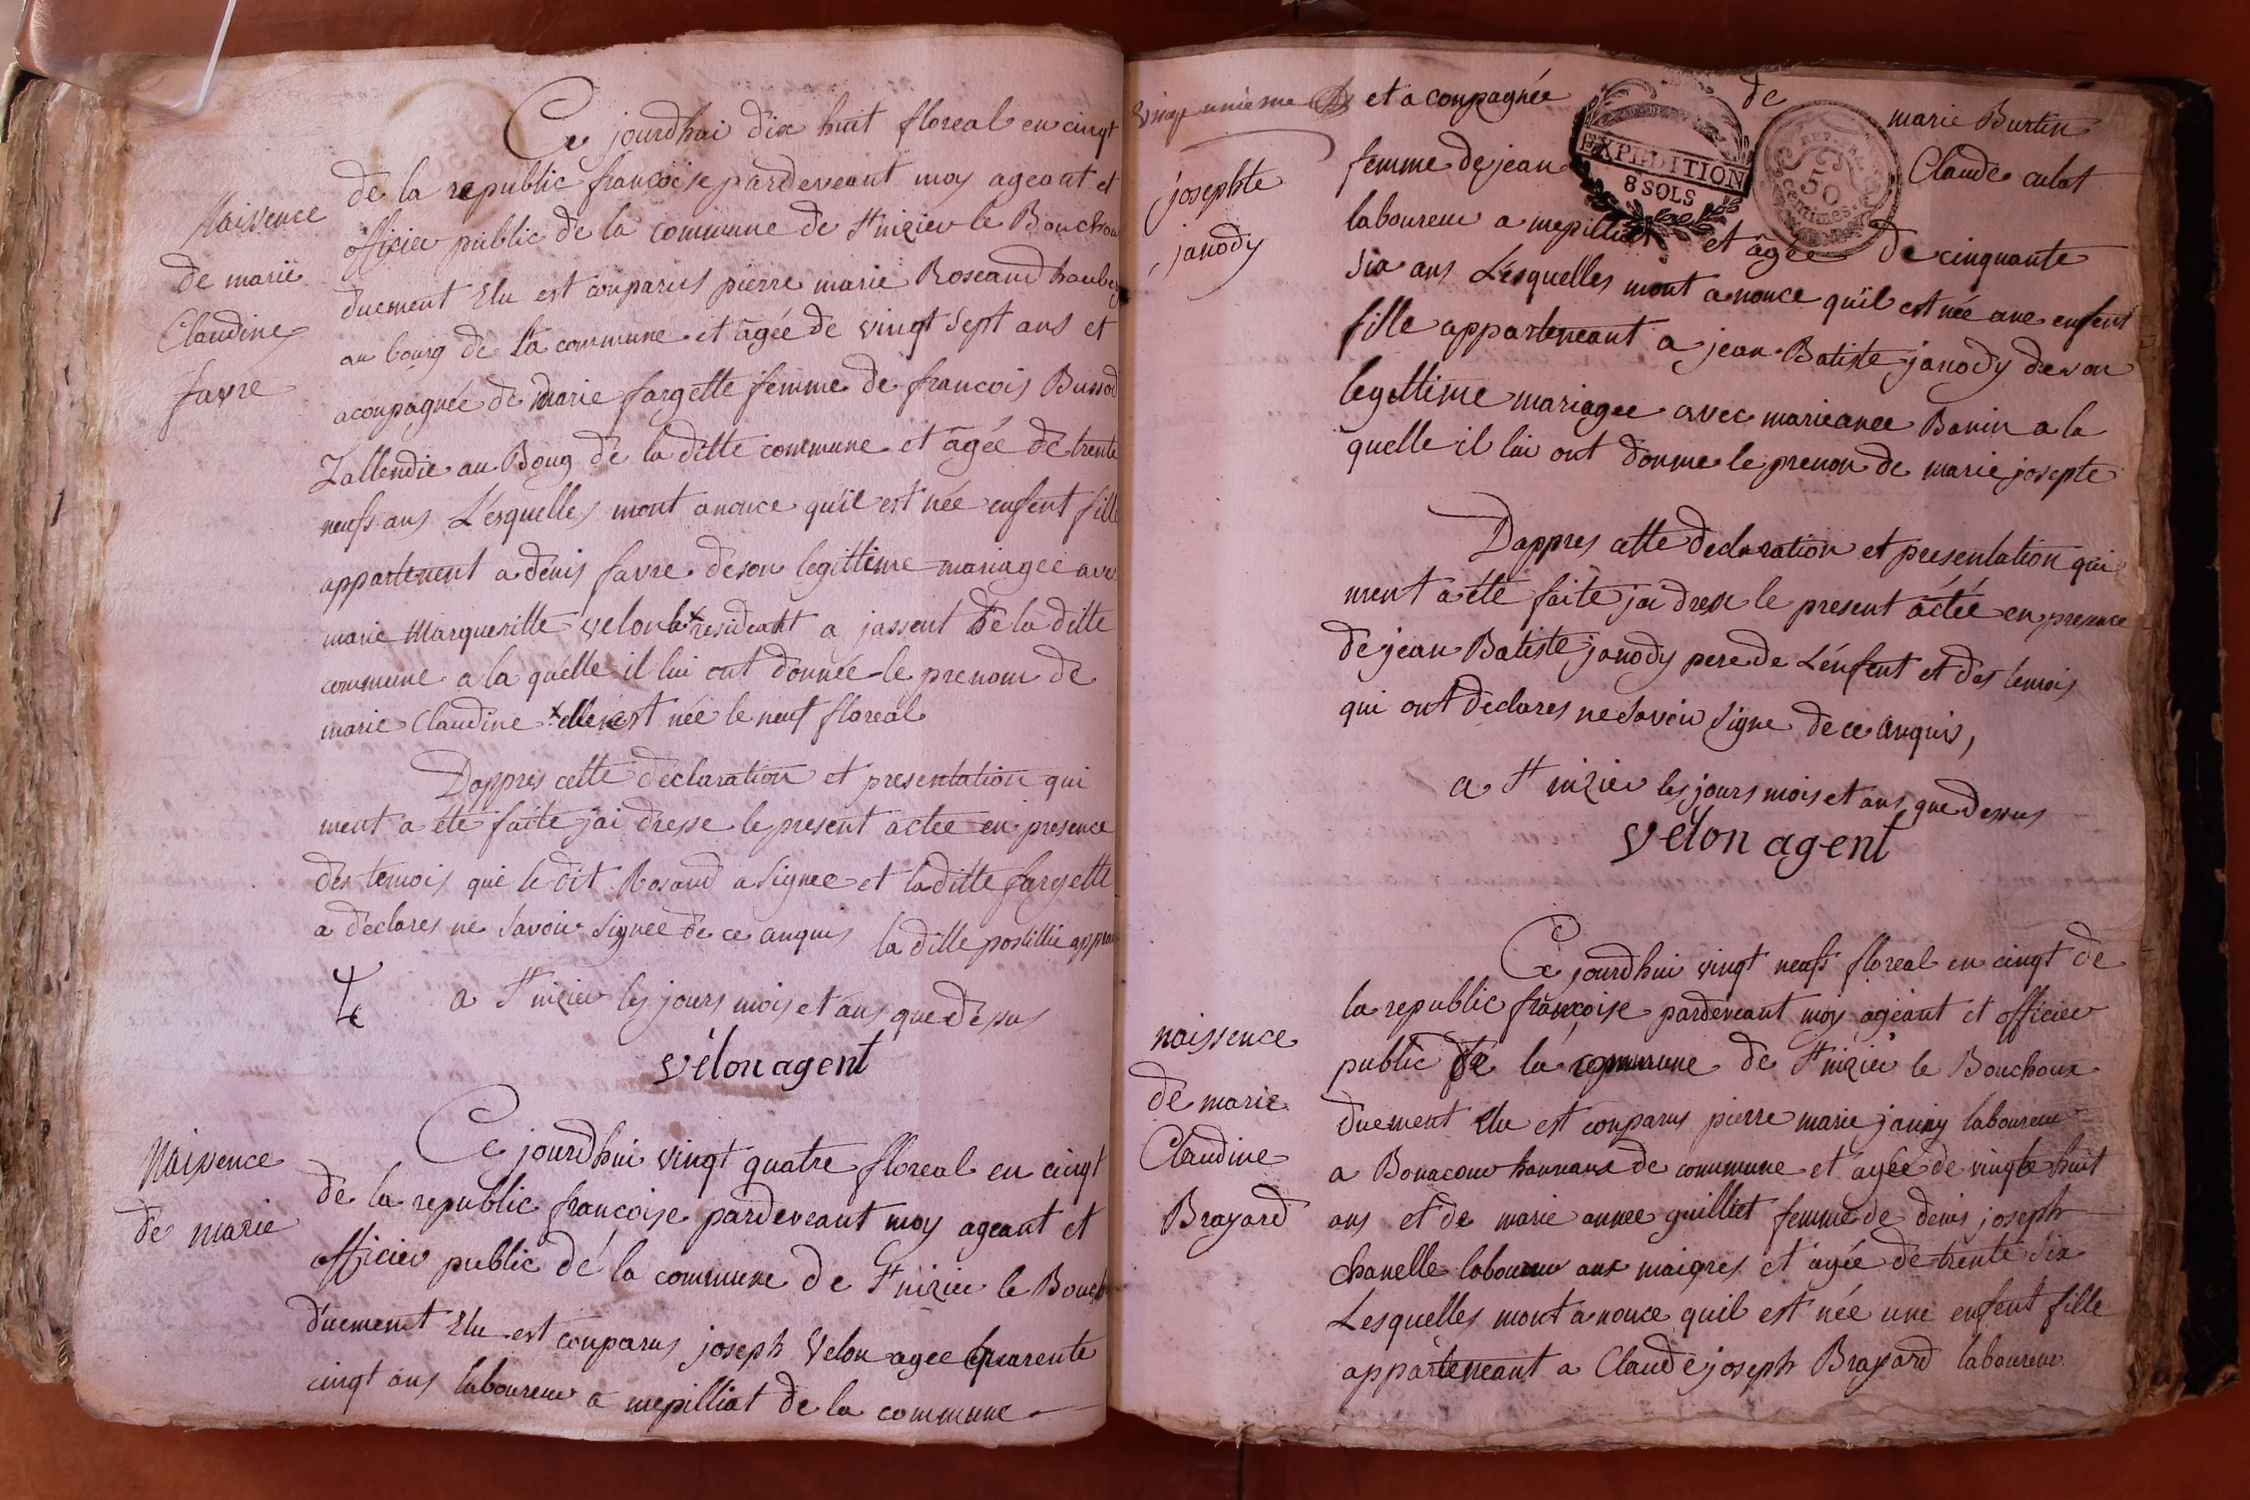 Naissence
de marie
Claudine
favre
Ce jourdhui dix huit floreal en cingt
de la republic francoise pardeveant moy ageant et
officier public de la commune de St nizier le Bouchou
duement Elu est conparus pierre marie Roseand haube
au bourg de la commune et âgée de vingt sept ans et
aconpagnée de marie fargette femme de francois Bussod
au Boug de la ditte commune et âgée de trente
neufs ans Lesquelles mont anonce quil est née enfent fille
appartenent a denis favre de son legittime mariagee avec
marie Margueritte velon x residant a jassent de la ditte
commune a la quelle il lui ont donnée le prenom de
marie Claudine x elle est née le neuf floreal
Dappres cette declaration et presentation qui
ment a été faite jai dresse le present actee en presence
des temois que le dit Rosand a signee et la ditte fargette
a declares ne savoir signee de ce anquis la ditte postillie appro
a St nizier les jours mois et ans que dessus
vélon agent
Naissence
de marie
Ce jourdhui vingt quatre floreal en cingt
de la republic francoise pardeveant moy ageant et
officier public de la commune de St nizier le Bouch
duement Elu est conparus joseph Velon agee quarente
cinqt ans laboureur a mepilliat de la commune
vingt unieme
josephte
janody
et aconpagnée de marie Burtin
femme de jean Claude culat
laboureur a mepilliat et âgée de cinquante
six ans Lesquelles mont anonce quil est née une enfent
fille apparteneant a jean Batiste janody de son
legittime mariagee avec marieanee Banin a la
quelle il lui ont donme le prenon de marie josepte
EXPEDITION
8 SOLS
REP. FRA.
50
centimes.
Dappres cette declaration et presentation qui
ment a été faite jai dresse le present actée en presence
de jean Batiste janody pere de Lenfent et des temois
qui ont declares ne savoir signe de ce anquis,
a St nizier les jours mois et ans que dessus
vélon agent
naissence
de marie
Claudine
Brayard
Ce jourdhui vingt neufs floreal en cingt de
la republic françoise pardeveant moy ageant et officier
public de la commune de St nizier le Bouchoux
duement Elu est conparus pierre marie janny laboureur
a Bonacour de commune et âgée de vingte huit
ans et de marie annee guilliet femme de denis joseph
chanelle laboureur aux maigres et agée de trente six
Lesquelles mont anonce quil est née une enfent fille
apparteneant a Claude joseph Brayard laboureur